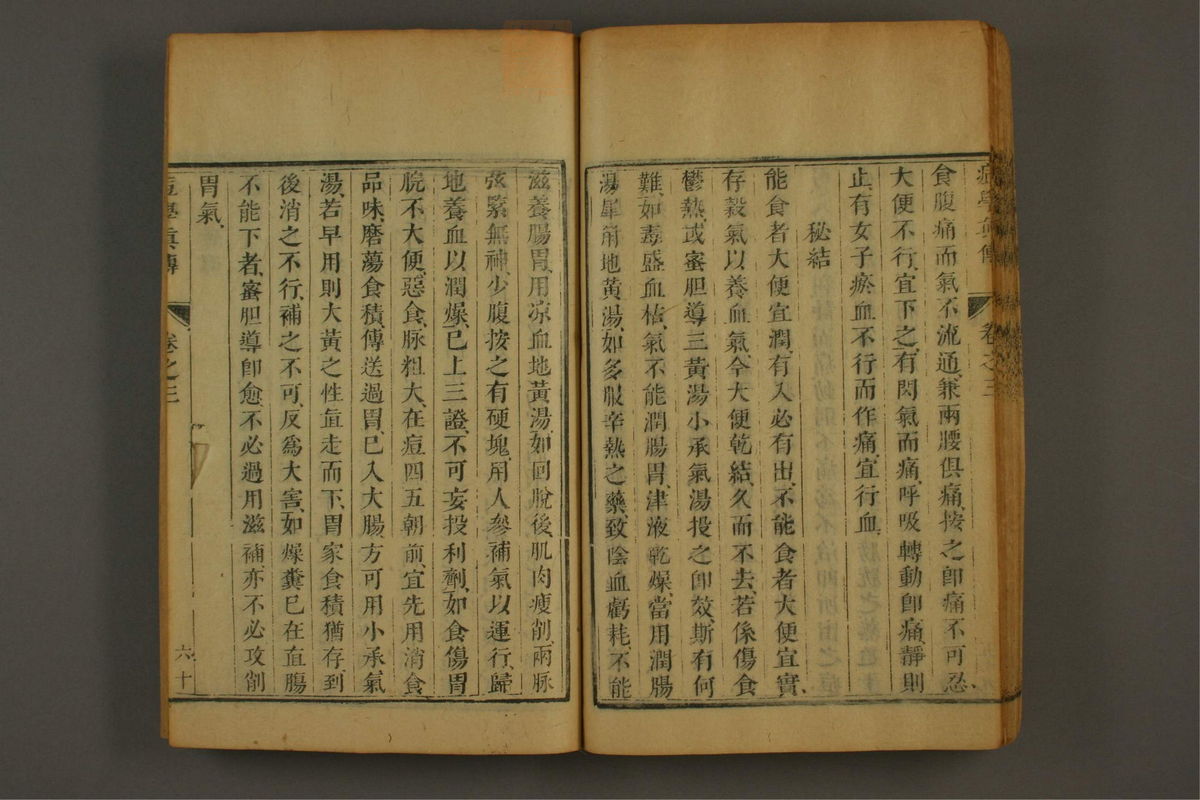 痘學眞傳 卷之三
食腹痛而氣不流通、兼兩腰俱痛、按之卽痛不可忍、
大便不行、宜下之、有閃氣而痛、呼吸轉動卽痛、靜則
止、有女子瘀血不行而作痛、宜行血、
秘結
能食者大便宜潤、有入必有出、不能食者大便宜實、
存穀氣以養血氣、今大便乾結、久而不去、若係傷食
鬱熱、或蜜胆導三黃湯小承氣湯投之卽效、斯有何
難、如毒盛血枯、氣不能潤腸胃、津液乾燥、當用潤腸
湯犀角地黃湯、如多服辛熱之藥、致陰血虧耗、不能
滋養腸胃、用凉血地黃湯、如回脫後、肌肉瘦削、兩脉
弦緊無神、少腹按之有硬塊、用人參補氣以運行、歸
地養血以潤燥、已上三證、不可妄投利劑、如食傷胃
脘、不大便、惡食、脉粗大、在痘四五朝前、宜先用消食
品味、磨蕩食積、傳送過胃、已入大腸、方可用小承氣
湯、若早用則大黃之性直走而下、胃家食積猶存、到
後消之不行、補之不可、反爲大害、如燥糞已在直腸
不能下者、蜜胆導卽愈、不必過用滋補、亦不必攻削
胃氣、
痘學眞傳 卷之三 六十